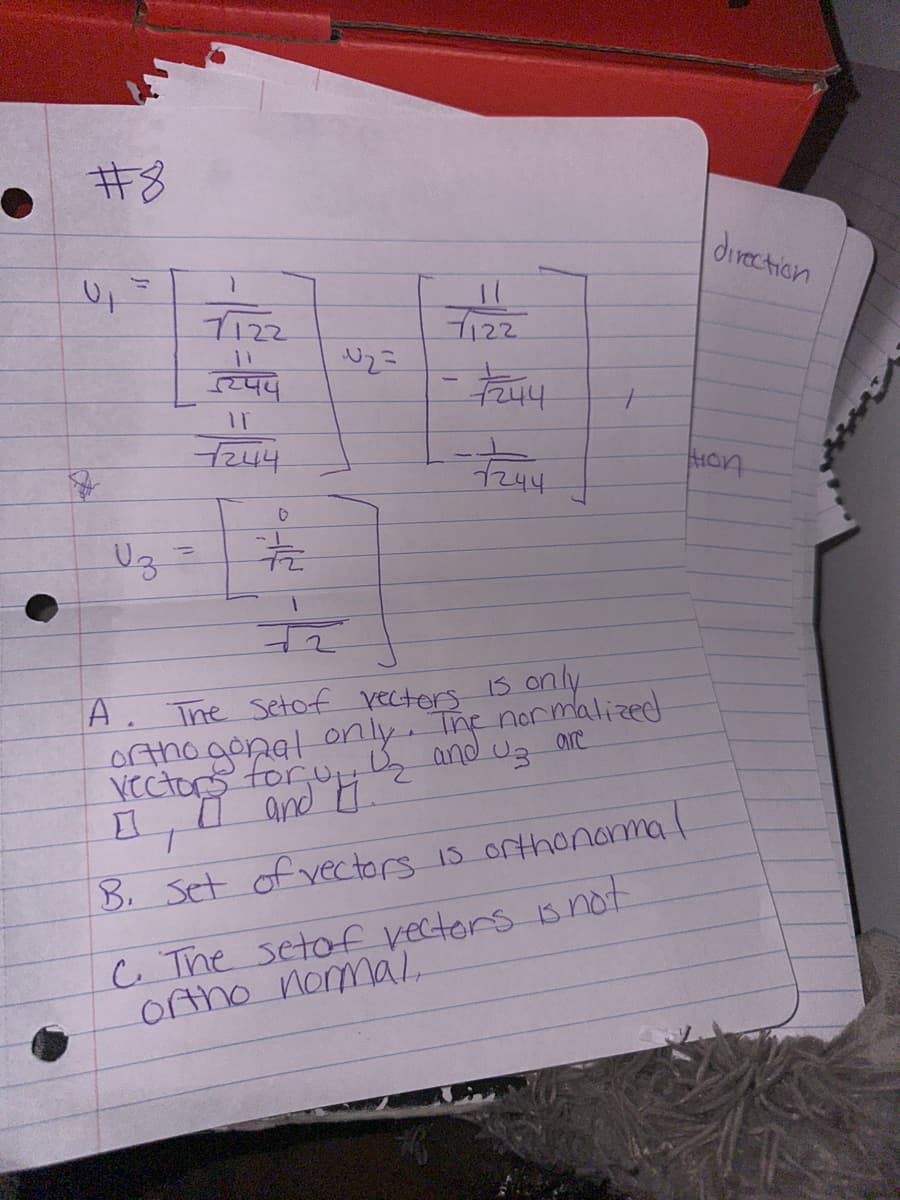 #8
direction
U₁ = [ 1/√122
11/√244
11/√244 ]
U₂ = [ 11/√122
- 1/√244
- 1/√244 ] ,
tion
U₃ = [ 0
-1/√2
1/√2 ]
A. The set of vectors is only
orthogonal only. The normalized
vectors for u₁, U₂ and u₃ are
▯, ▯ and ▯.
B. set of vectors is orthonormal
C. The set of vectors is not
ortho normal.